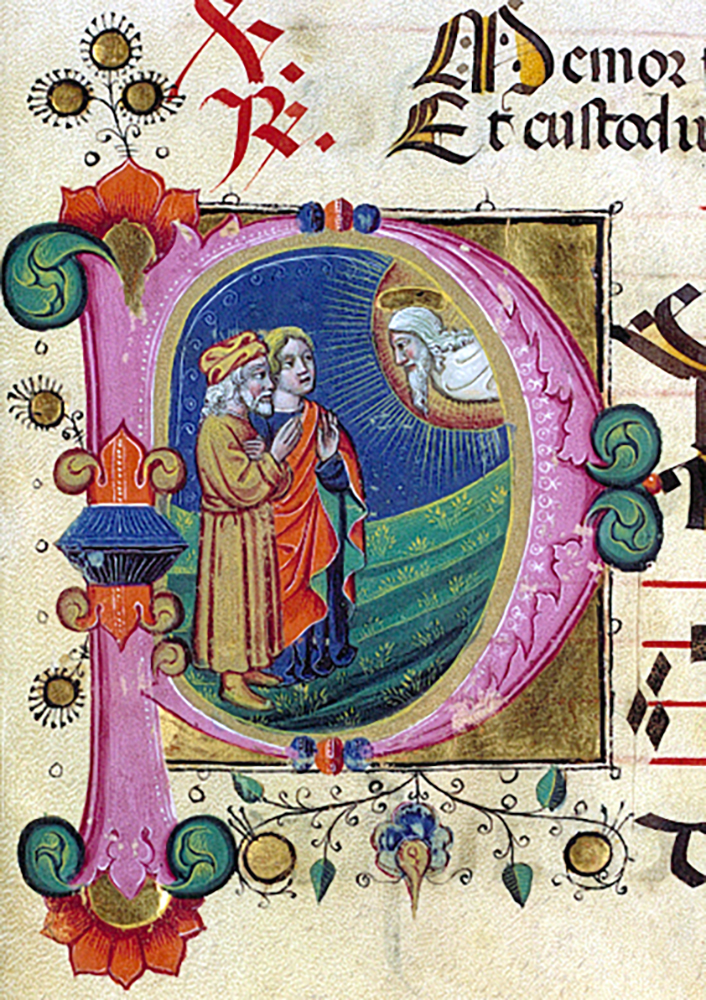 ℣. Memor
℟. Et custodiu
P